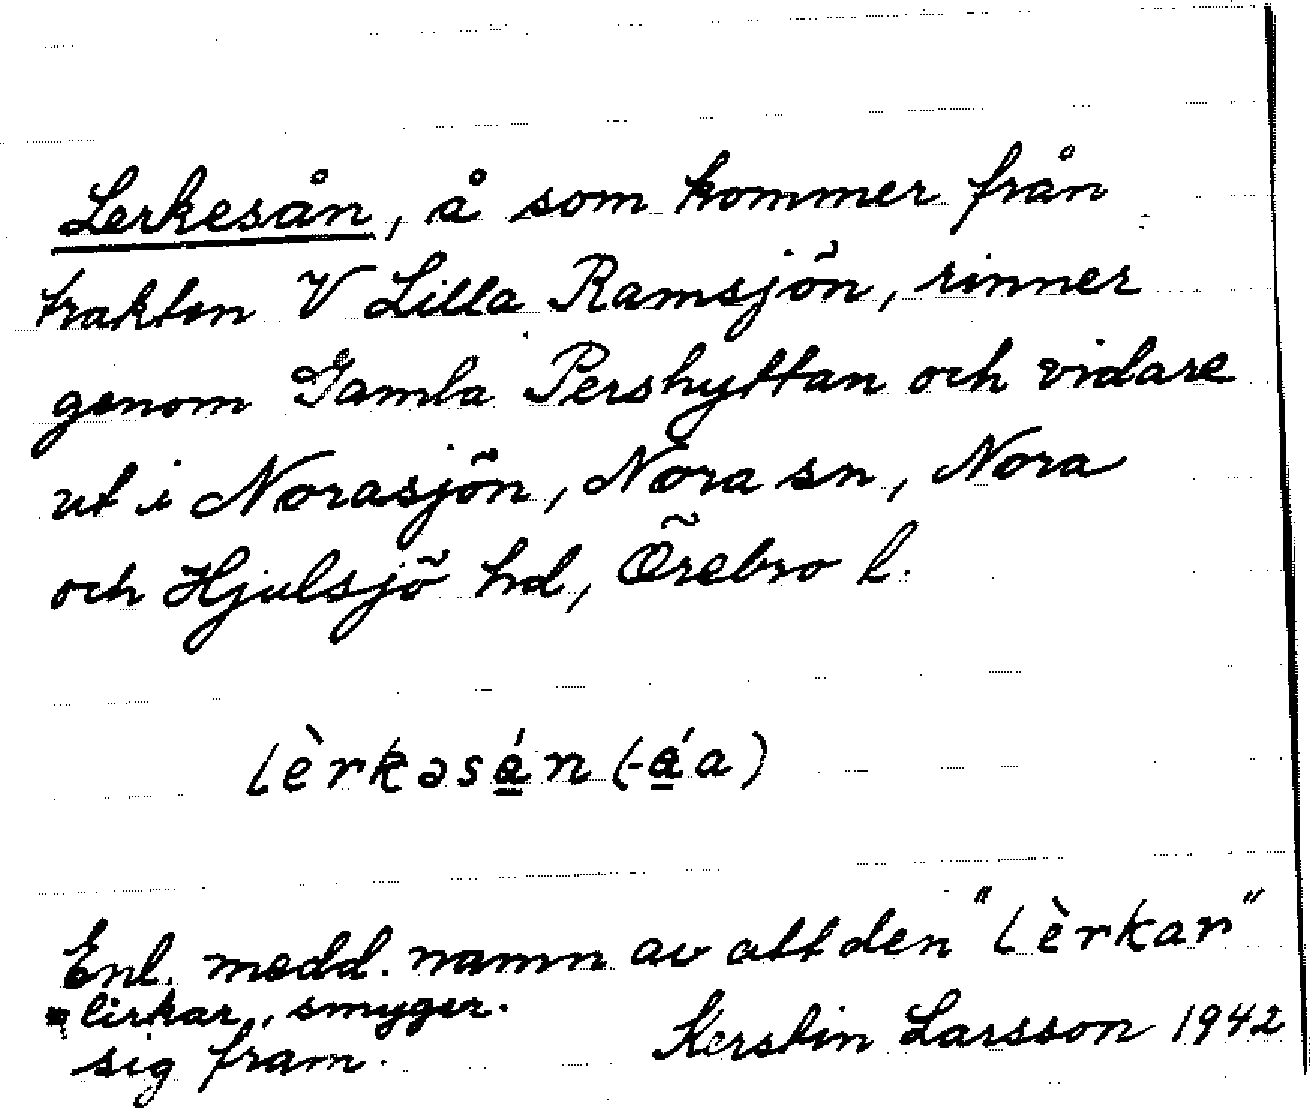 Lerkesån, å som kommer från
trakten V Lilla Ramsjön, rinner
genom Gamla Pershyttan och vidare
ut i Norasjön, Nora sn, Nora
och Hjulsjö hd, Örebro l.
lèrkəsá̱n (-á̱a)
Enl. medd. namn av att den "lèrkar"
= lirkar, smyger.
sig fram.
Kerstin Larsson 1942